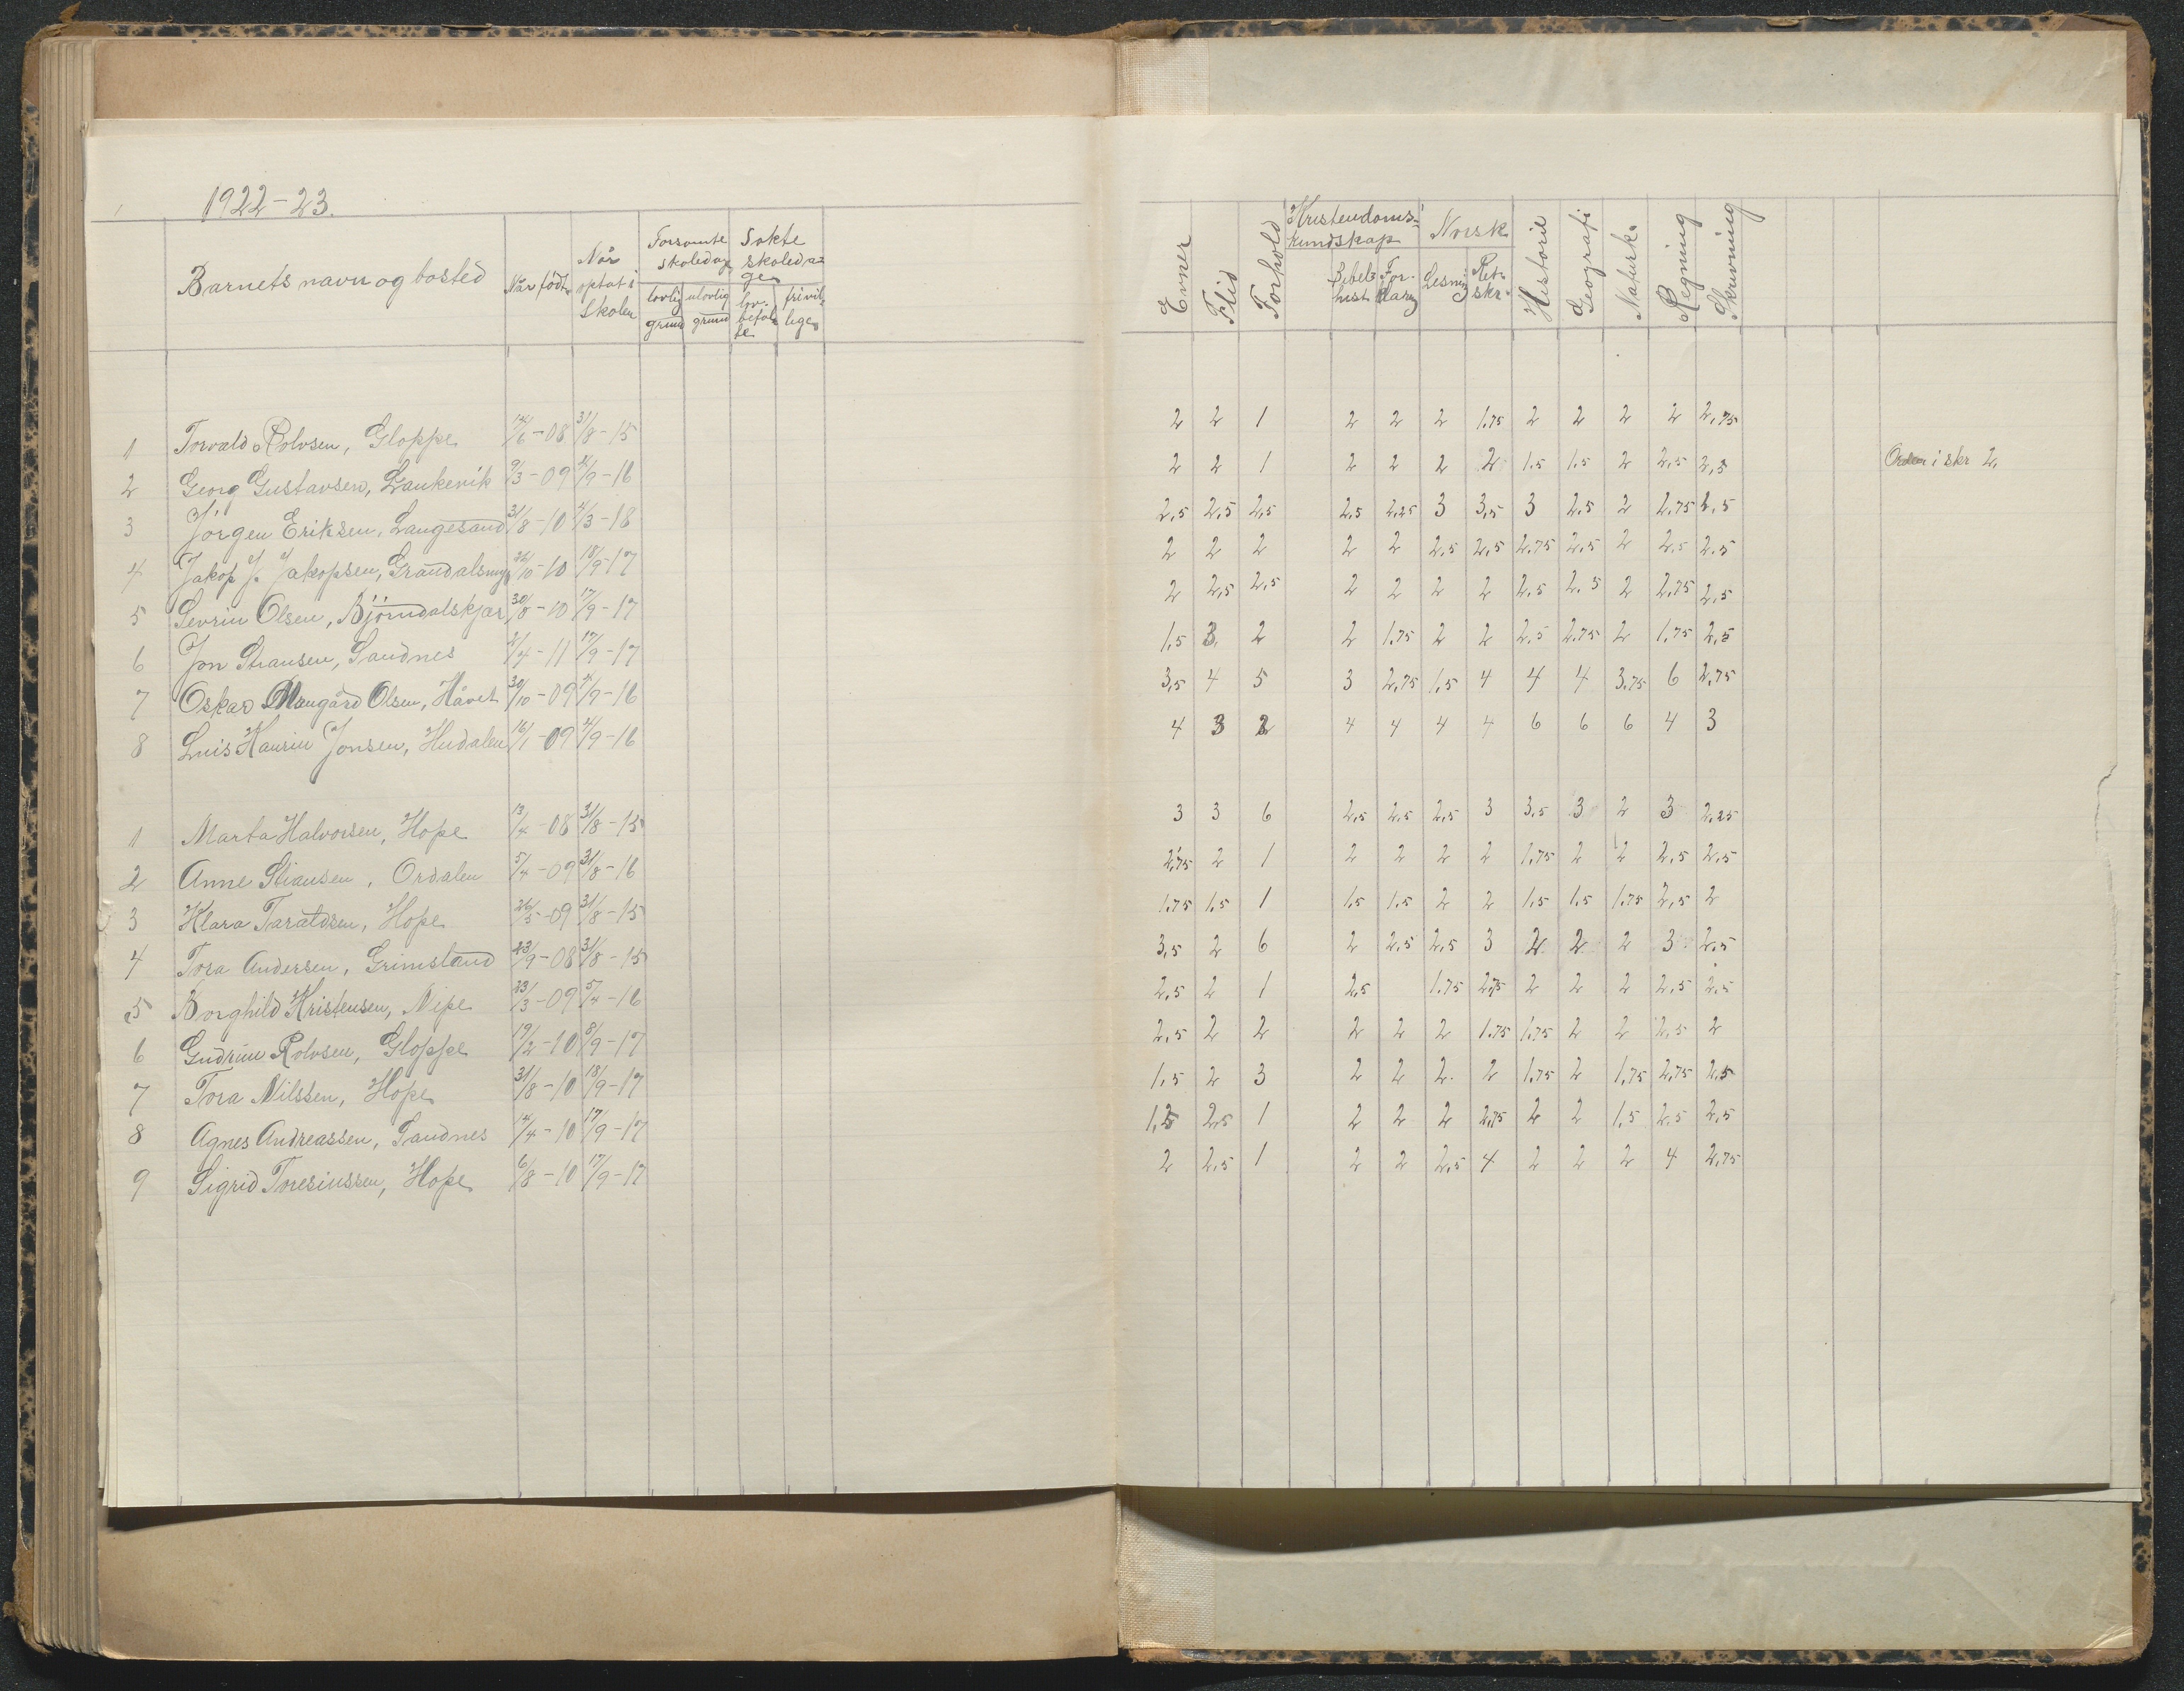 1922-23.
Barnets navn og bosted | Når född | Når optat i skolen | Forsömte skoledage: lovlig grund, ulovlig grund | Sökte skoledage: lov-befalte, frivillige | Evner | Flid | Forhold | Kristendomskundskap: Bibelhist, Forklaring | Norsk: Lesning, Retskr. | Historie | Geografi | Naturk. | Regning | Skrivning
1 Torvald Rolvsen, Gloppe 14/6-08 31/8-15 2 2 1 2 2 2 1.75 2 2 2 2 2,75
2 Georg Gustavsen, Laukevik 9/3-09 4/9-16 2 2 1 2 2 2 2 1.5 1.5 2 2,5 2,5 Orden i skr 2.
3 Jörgen Eriksen, Langesand 31/8-10 4/3-18 2,5 2,5 2,5 2,5 2,25 3 3,5 3 2,5 2 2,75 2,5
4 Jakop J. Jakopsen, 26/10-10 18/9-17 2 2 2 2 2 2,5 2,5 2,75 2,5 2 2,5 2,5
5 Sevrin Olsen, Björndalskjær 30/8-10 17/9-17 2 2,5 2,5 2 2 2 2 2,5 2.5 2 2,75 2,5
6 Jon Stiansen, Sandnes 2/4-11 17/9-17 1,5 3 2 2 1.75 2 2 2,5 2.75 2 1.75 2,5
7 Oskar Olsen, Håvet 30/10-09 4/9-16 3,5 4 5 3 2,75 1,5 4 4 4 3,75 6 2,75
8 Luis Kaurin Jonsen, Hudalen 16/1-09 4/9-16 4 3 2 4 4 4 4 6 6 6 4 3
1 Marta Halvorsen, Hope 13/4-08 31/8-15 3 3 6 2,5 2,5 2,5 3 3,5 3 2 3 2,25
2 Anne Stiansen, Ordalen 5/4-09 31/8-16 2,75 2 1 2 2 2 2 1,75 2 2 2,5 2,5
3 Klara Taraldsen, Hope 26/5-09 31/8-15 1.75 1,5 1 1.5 1.5 2 2 1.5 1.5 1.75 2,5 2
4 Tora Andersen, Grimstand 23/9-08 31/8-15 3,5 2 6 2 2,5 2,5 3 2 2 2 3 2,5
5 Borghild Kristensen, Nipe 23/3-09 5/4-16 2,5 2 1 2,5 1.75 2,75 2 2 2 2,5 2,5
6 Gudrun Rolvsen, Gloppe 19/2-10 8/9-17 2,5 2 2 2 2 2 1.75 1.75 2 2 2,5 2
7 Tora Nilssen, Hope 31/8-10 18/9-17 1,5 2 3 2 2 2 2 1.75 2 1,75 2,75 2,5
8 Agnes Andreassen, Sandnes 14/4-10 17/9-17 2,5 1 2 2 2 2,75 2 2 1,5 2,5 2,5
9 Sigrid Toresiussen, Hope 6/8-10 17/9-17 2 2,5 1 2 2 2,5 4 2 2 2 4 2,75